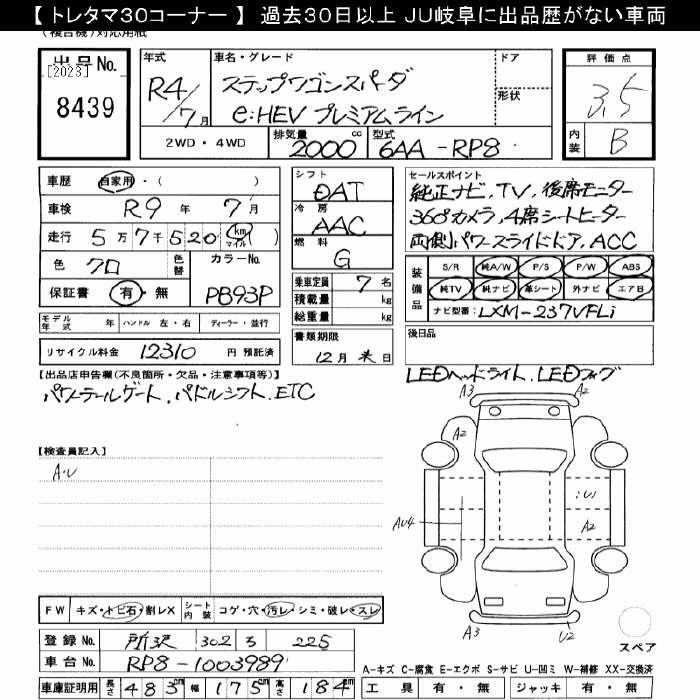 【トレタマ30コーナー】 過去30日以上 JU岐阜に出品歴がない車両
(複合機)対応用紙
出品No.
[2023]
8439
年式
R4/7月
車名・グレード
ステップワゴンスパーダ
e:HEV プレミアムライン
ドア
形状
評価点
3.5
内装 B
2WD・4WD
排気量 2000 cc
型式 6AA-RP8
車歴 自家用・( )
車検 R9年 7月
走行 5万7千520 km マイル ( )
色 クロ 色替
カラーNo. PB93P
保証書 有・無
モデル年式 年 ハンドル 左・右 ディーラー・並行
リサイクル料金 12310 円 預託済
シフト
DAT
冷房
AAC
燃料
G
乗車定員 7名
積載量 kg
総重量 kg
書類期限
12月末日
セールスポイント
純正ナビ、TV、後席モニター
360°カメラ、4席シートヒーター
両側パワースライドドア、ACC
装備品
S/R 純A/W P/S P/W ABS
純TV 純ナビ 革シート 外ナビ エアB
ナビ型番: LXM-237VFLi
後日品
LEDヘッドライト、LEDフォグ
【出品店申告欄(不良箇所・欠品・注意事項等)】
パワーテールゲート、パドルシフト、ETC
【検査員記入】
A・U
A3
A2
A2
A2
:U1
AU4
A2
A3
U2
スペア
FW キズ・トビ石・割レX
シート内装 コゲ・穴・汚レ・シミ・破レ・スレ
登録No. 所沢 302 ろ 225
車台No. RP8-1003989
車庫証明用 長さ 483cm 幅 175cm 高さ 184cm
A-キズ C-腐食 E-エクボ S-サビ U-凹ミ W-補修 XX-交換済
工具 有・無 ジャッキ 有・無